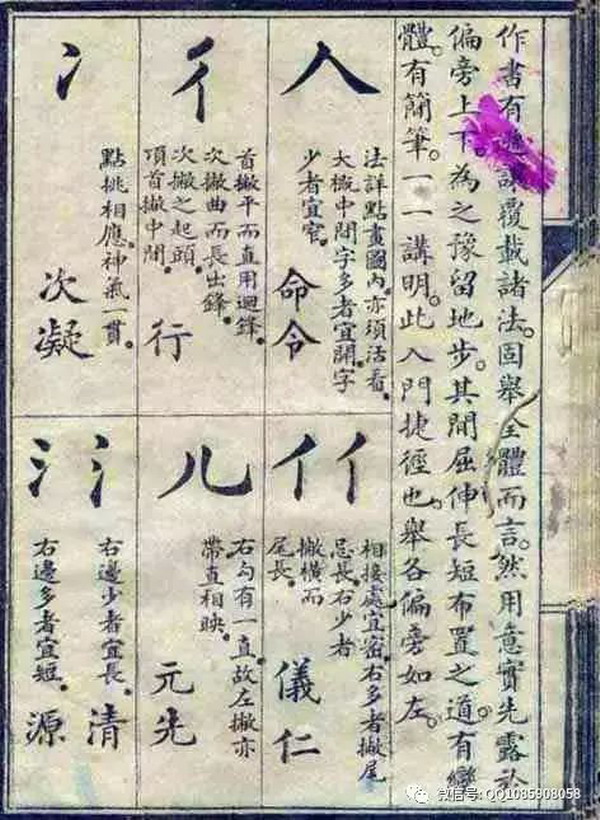 作書有讓覆載諸法。固舉全體而言。然用意實先露於
偏旁上下。為之豫留地步。其間屈伸長短布置之道。有變
體。有簡筆。一一講明。此入門捷徑也。舉各偏旁如左。
人
法詳點畫圖內。亦須活看。
大概中間字多者宜開。字
少者宜窄。
命令
彳
首撇平而直用迴鋒。
次撇曲而長出鋒。
次撇之起頭。
項首撇中間。
行
冫
點挑相應。神氣一貫。
次凝
亻亻
相接處宜密。右多者撇尾
忌長。右少者
撇橫而
尾長。
儀仁
儿
右勾有一直。故左撇亦
帶直相映。
元先
氵氵
右邊少者宜長。清
右邊多者宜短。源
微信号: QQ1085908058